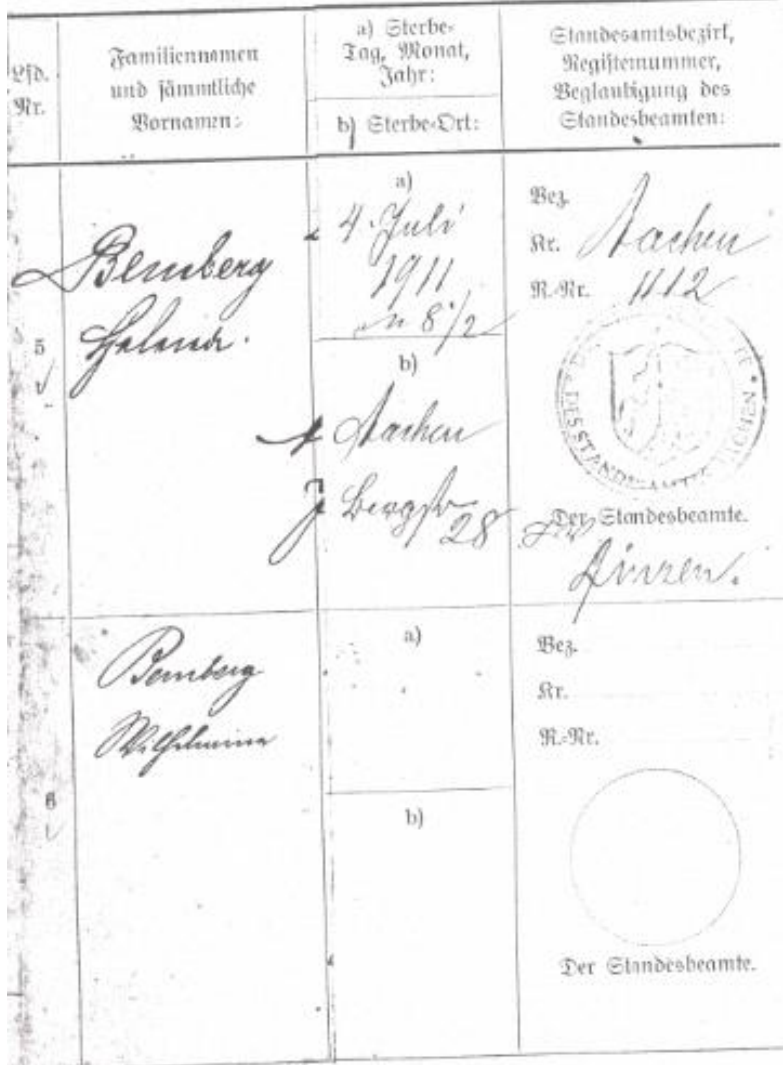 Lfd.
Nr.
Familiennamen
und sämmtliche
Vornamen:
a) Sterbe-
Tag, Monat,
Jahr:
b) Sterbe-Ort:
Standesamtsbezirk,
Registernummer,
Beglaubigung des
Standesbeamten:
5
Bemberg
Helena.
a)
4. Juli
1911
8 1/2
b)
Aachen
Bergstr
28
Bez.
Kr. Aachen
R.-Nr. 1112
DES STANDESAMTES AACHEN
Der Standesbeamte.
6
Bemberg
Wilhelmine
a)
b)
Bez.
Kr.
R.-Nr.
Der Standesbeamte.